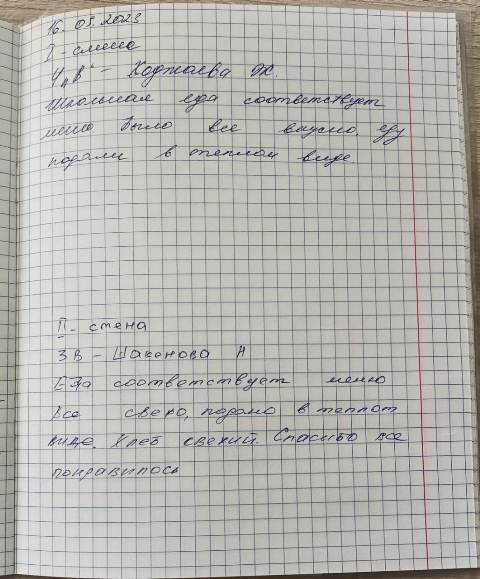 16.05.2023
I - смена
4 „В" - Ходжаева Ж.
школьная еда соответствует
меню было все вкусно, еду
подали в теплом виде
II - смена
3 В - Шакенова А
Еда соответствует меню
Все свежо, подано в теплот
виде. Хлеб свежий. Спасибо все
понравилось